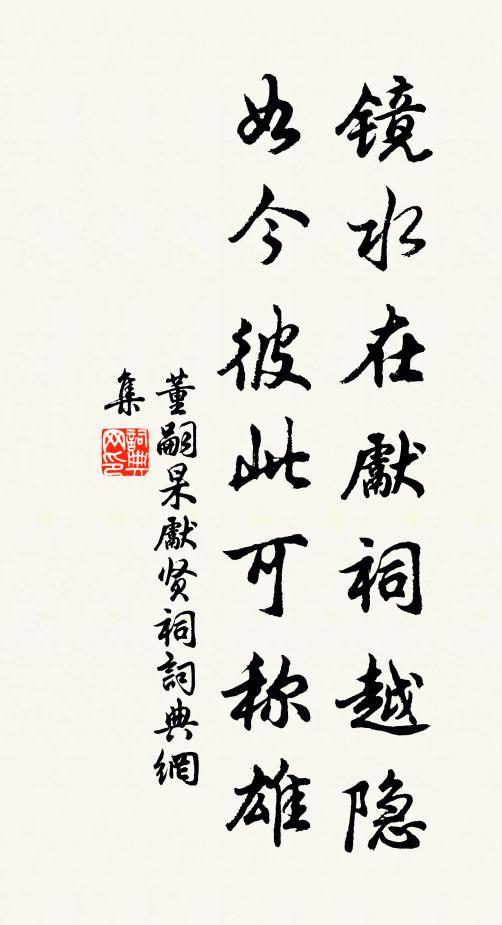 鏡水在獻祠越隐
如今彼此可称雄
董嗣杲獻贤祠詞典網
集
詞典
网印